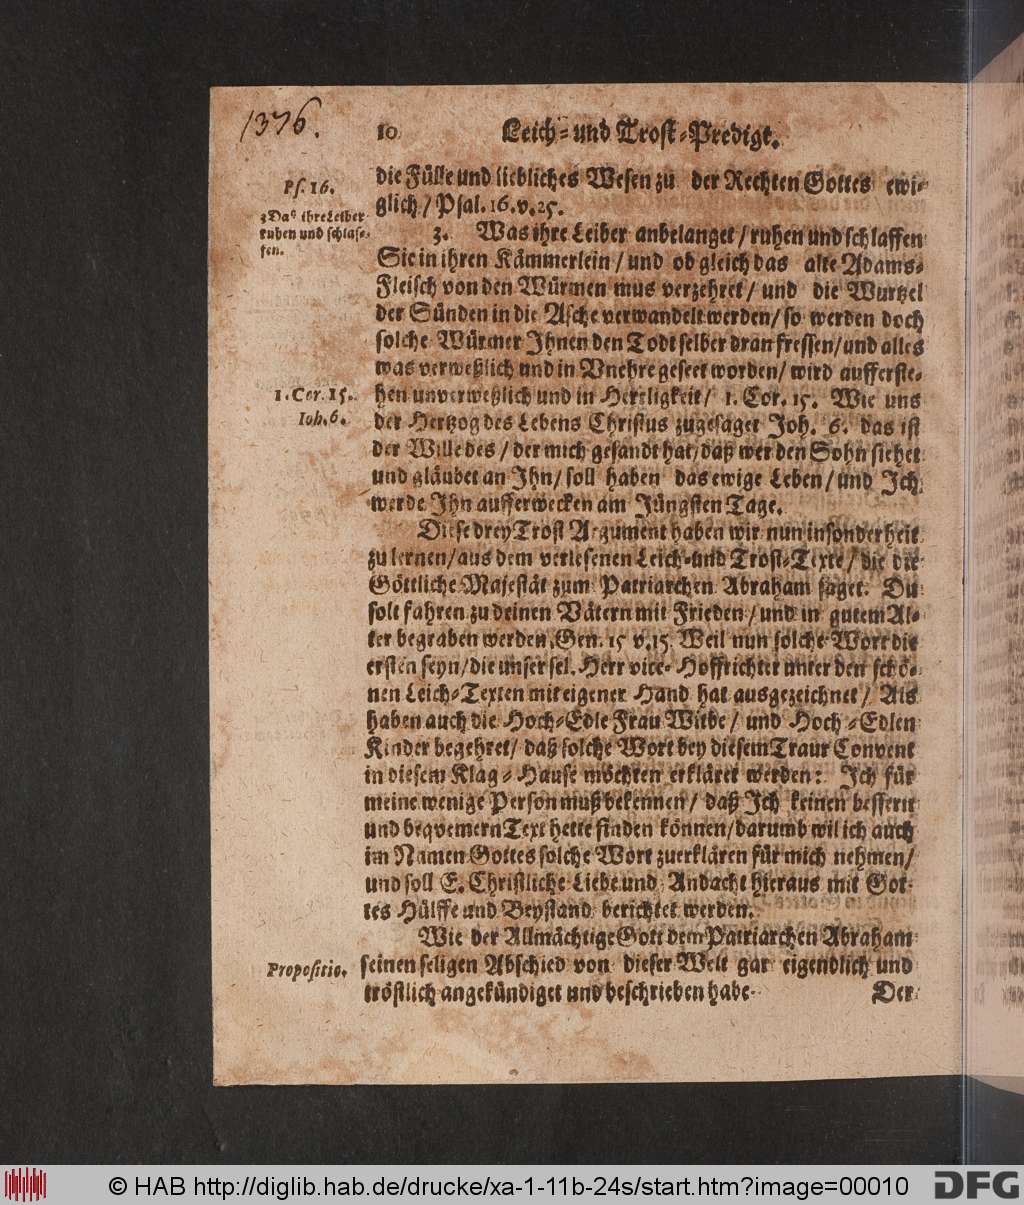 1376.
10 Leich- und Trost-Predigt.
die Fülle und liebliches Wesen zu der Rechten Gottes ewi-
glich/ Psal. 16. v. 25.
Ps. 16.
3 Daß ihre Leiber
ruhen und schlaf-
fen.
3. Was ihre Leiber anbelanget/ ruhen und schlaffen
Sie in ihren Kämmerlein/ und ob gleich das alte Adams-
Fleisch von den Würmen mus verzehret/ und die Wurtzel
der Sünden in die Asche verwandelt werden/ so werden doch
solche Würmer Ihnen den Todt selber dran fressen/ und alles
was verweßlich und in Unehre geseet worden/ wird aufferste-
hen unverweßlich und in Herrligkeit/ 1. Cor. 15. Wie uns
1. Cor. 15.
der Hertzog des Lebens Christus zugesaget Joh. 6. das ist
Ioh. 6.
der Wille des/ der mich gesandt hat/ daß wer den Sohn siehet
und gläubet an Ihn/ soll haben das ewige Leben/ und Ich
werde Ihn aufferwecken am Jüngsten Tage.
Diese drey Trost Argument haben wir nun insonderheit
zu lernen/ aus dem verlesenen Leich- und Trost-Texte/ die die
Göttliche Majestät zum Patriarchen Abraham saget. Du
solt fahren zu deinen Vätern mit Frieden/ und in gutem Al-
ter begraben werden. Gen. 15 v. 15. Weil nun solche Wort die
ersten seyn/ die unser sel. Herr vice-Hoffrichter unter den schö-
nen Leich-Texten mit eigener Hand hat ausgezeichnet/ Als
haben auch die Hoch-Edle Frau Witbe/ und Hoch-Edlen
Kinder begehret/ daß solche Wort bey diesem Traur Convent
in diesem Klag-Hause möchten erkläret werden: Ich für
meine wenige Person muß bekennen/ daß Ich keinen bessern
und beqvemern Text hette finden können/ darumb wil ich auch
im Namen Gottes solche Wort zuerklären für mich nehmen/
und soll E. Christliche Liebe und Andacht hieraus mit Got-
tes Hülffe und Beystand berichtet werden.
Wie der Allmächtige Gott dem Patriarchen Abraham
Propositio.
seinen seligen Abschied von dieser Welt gar eigendlich und
tröstlich angekündiget und beschrieben habe.
Der
© HAB http://diglib.hab.de/drucke/xa-1-11b-24s/start.htm?image=00010
DFG